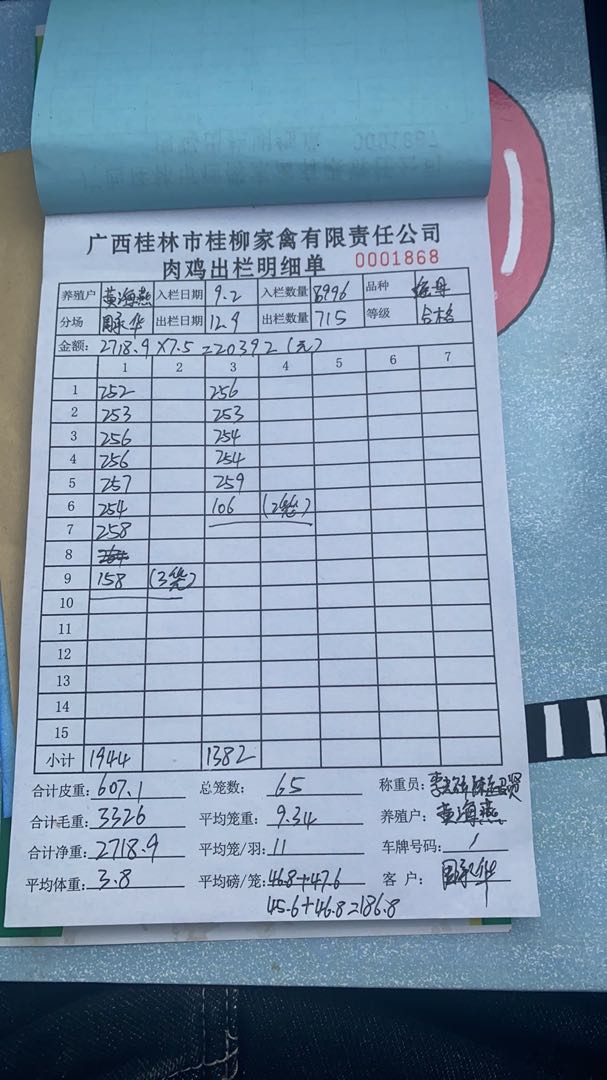 广西桂林市桂柳家禽有限责任公司
肉鸡出栏明细单 0001868
养殖户 黄海燕 入栏日期 9.2 入栏数量 8996 品种
分场 周承华 出栏日期 12.9 出栏数量 715 等级 合格
金额: 2718.9×7.5=20392(元)
1 2 3 4 5 6 7
1 252 256
2 253 253
3 256 254
4 256 254
5 257 259
6 254 106 (2笼)
7 258
8 264
9 158 (3笼)
10
11
12
13
14
15
小计 1944 1382
合计皮重: 607.1 总笼数: 65 称重员:
合计毛重: 3326 平均笼重: 9.34 养殖户: 黄海燕
合计净重: 2718.9 平均笼/羽: 11 车牌号码: /
平均体重: 3.8 平均磅/笼: 46.8+47.6 客户: 周承华
45.6+46.8=186.8